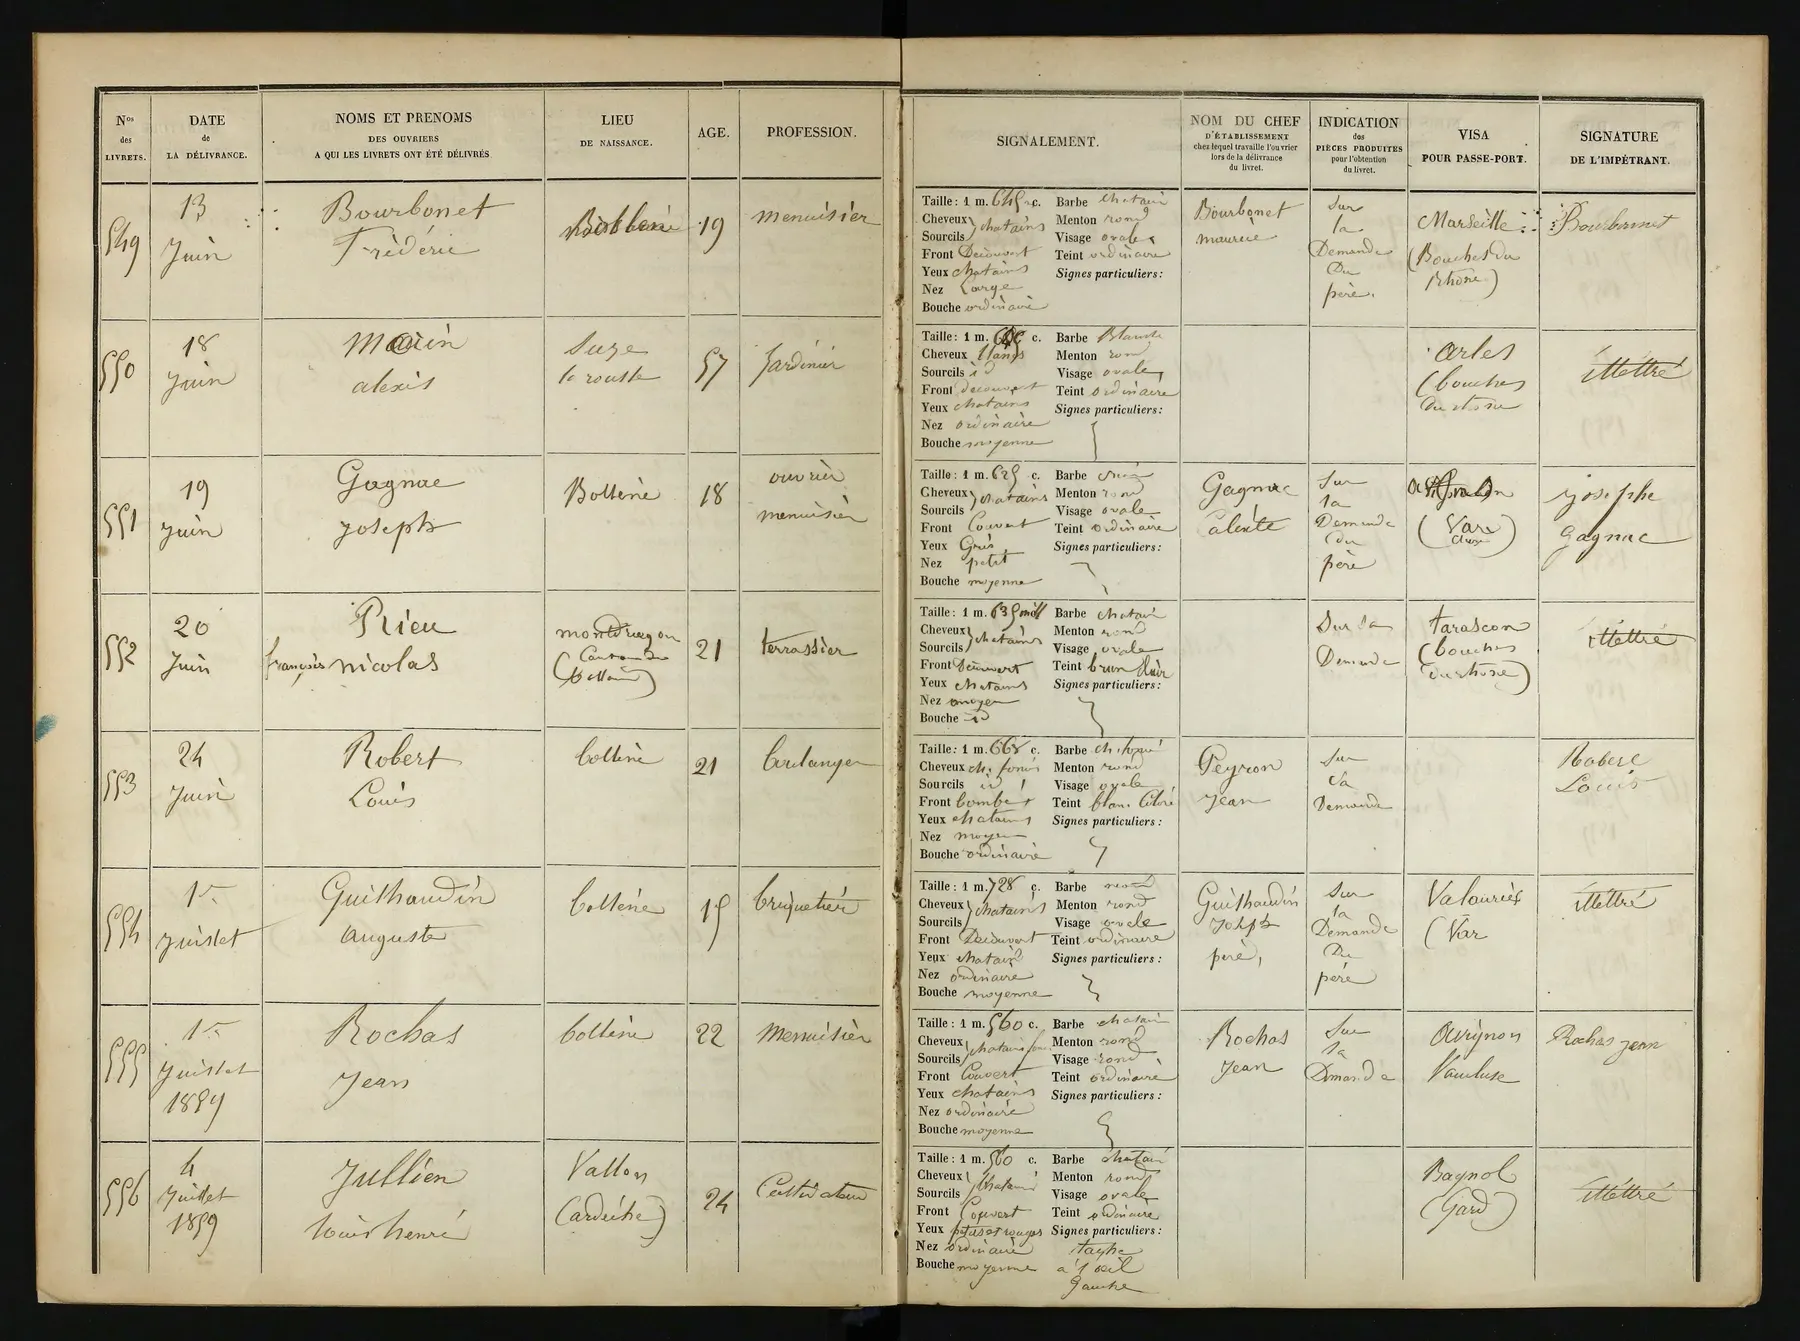 Nos des LIVRETS.
DATE de LA DÉLIVRANCE.
NOMS ET PRENOMS
DES OUVRIERS
A QUI LES LIVRETS ONT ÉTÉ DÉLIVRÉS
LIEU
DE NAISSANCE.
AGE.
PROFESSION.
SIGNALEMENT.
NOM DU CHEF
D'ÉTABLISSEMENT
chez lequel travaille l'ouvrier
lors de la délivrance
du livret.
INDICATION
des
PIÈCES PRODUITES
pour l'obtention
du livret.
VISA
POUR PASSE-PORT.
SIGNATURE
DE L'IMPÉTRANT.
549
13
Juin
Bourbonet
Frédéric
19
menuisier
Taille : 1 m. 645 c. Barbe chatain
Cheveux } chatains Menton rond
Sourcils Visage ovale
Front Decouvert Teint ordinaire
Yeux chatains Signes particuliers :
Nez Large
Bouche ordinaire
Bourbonet
maurice
Sur
la
Demande
Du
père.
Marseille
(Bouches du
Rhône)
Bourbonnet
550
18
Juin
alexis
Suze
la rousse
57
Jardinier
Taille : 1 m. c. Barbe Blanche
Cheveux blancs Menton rond
Sourcils id Visage ovale
Front decouvert Teint ordinaire
Yeux chatains Signes particuliers :
Nez ordinaire
Bouche moyenne
arles
(bouches
du rhone
illettré
551
19
Juin
Gagnac
Joseph
Bollène
18
ouvrier
menuisier
Taille : 1 m. 625 c. Barbe
Cheveux } chatains Menton rond
Sourcils Visage ovale
Front Couvert Teint ordinaire
Yeux Gris Signes particuliers :
Nez petit
Bouche moyenne
Gagnac
calixte
Sur
la
Demande
du
père
(Var
josephe
gagnac
552
20
Juin
Rieu
françois nicolas
mondragon
(Canton de
bollène)
21
terrassier
Taille : 1 m. 635 mill Barbe chatain
Cheveux } chatains Menton rond
Sourcils Visage ovale
Front Decouvert Teint brun clair
Yeux chatains Signes particuliers :
Nez moyen
Bouche id
Sur sa
Demande
tarascon
(bouches
du rhone)
illettré
553
24
Juin
Robert
Louis
bollène
21
boulanger
Taille : 1 m. 668 c. Barbe
Cheveux ch. foncés Menton rond
Sourcils id Visage ovale
Front bombé Teint blanc Coloré
Yeux chatains Signes particuliers :
Nez moyen
Bouche ordinaire
Peyron
Jean
Sur
sa
Demande
Robert
Louis
554
1er
Juillet
Guilhaudin
auguste
bollène
15
briquetier
Taille : 1 m. 728 c. Barbe
Cheveux } chatains Menton rond
Sourcils Visage ovale
Front Decouvert Teint ordinaire
Yeux chatain Signes particuliers :
Nez ordinaire
Bouche moyenne
Guilhaudin
Joseph
père,
Sur
la
Demande
Du
père
Valouries
(Var
illettré
555
1er
Juillet
1859
Rochas
Jean
bollène
22
Menuisier
Taille : 1 m. 560 c. Barbe chatain
Cheveux } chatains foncés Menton rond
Sourcils Visage rond
Front Couvert Teint ordinaire
Yeux chatains Signes particuliers :
Nez ordinaire
Bouche moyenne
Rochas
Jean
Sur
sa
Demande
avignon
Vaucluse
Rochas jean
556
4
Juillet
1859
Jullien
louis henri
Vallon
(ardèche)
24
Cultivateur
Taille : 1 m. 560 c. Barbe chatain
Cheveux } chatains Menton rond
Sourcils Visage ovale
Front Couvert Teint ordinaire
Yeux petits et rouges Signes particuliers :
Nez ordinaire tayhe
Bouche moyenne a l'oeil
Gauche
Bagnol
(Gard)
illettré